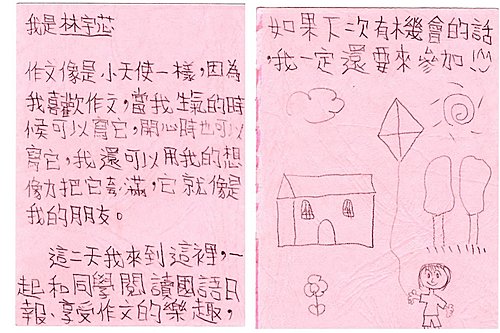 我是林宇芯
作文像是小天使一樣，因為
我喜歡作文，當我生氣的時
候可以寫它，開心時也可以
寫它，我還可以用我的想
像力把它滿，它就像是
我的朋友。
這二天我來到這裡，一
起和同學閱讀國語日
報、享受作文的樂趣，
如果下次有機會的話
，我一定還要來參加!!